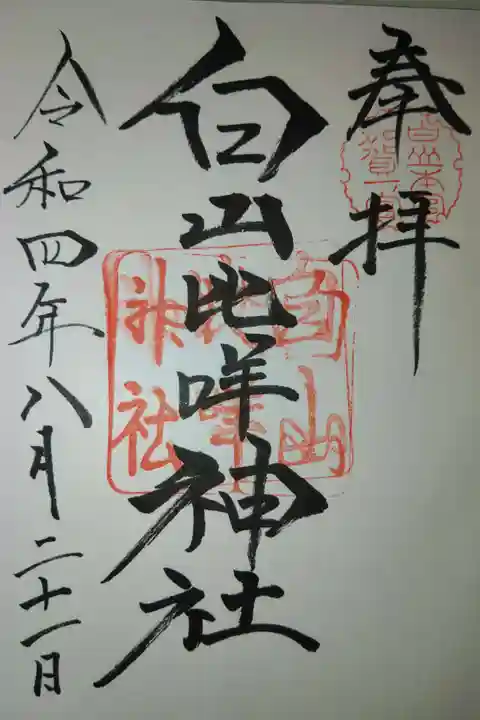 奉拝
白山比咩神社
令和四年八月二十一日
白山
比咩
神社